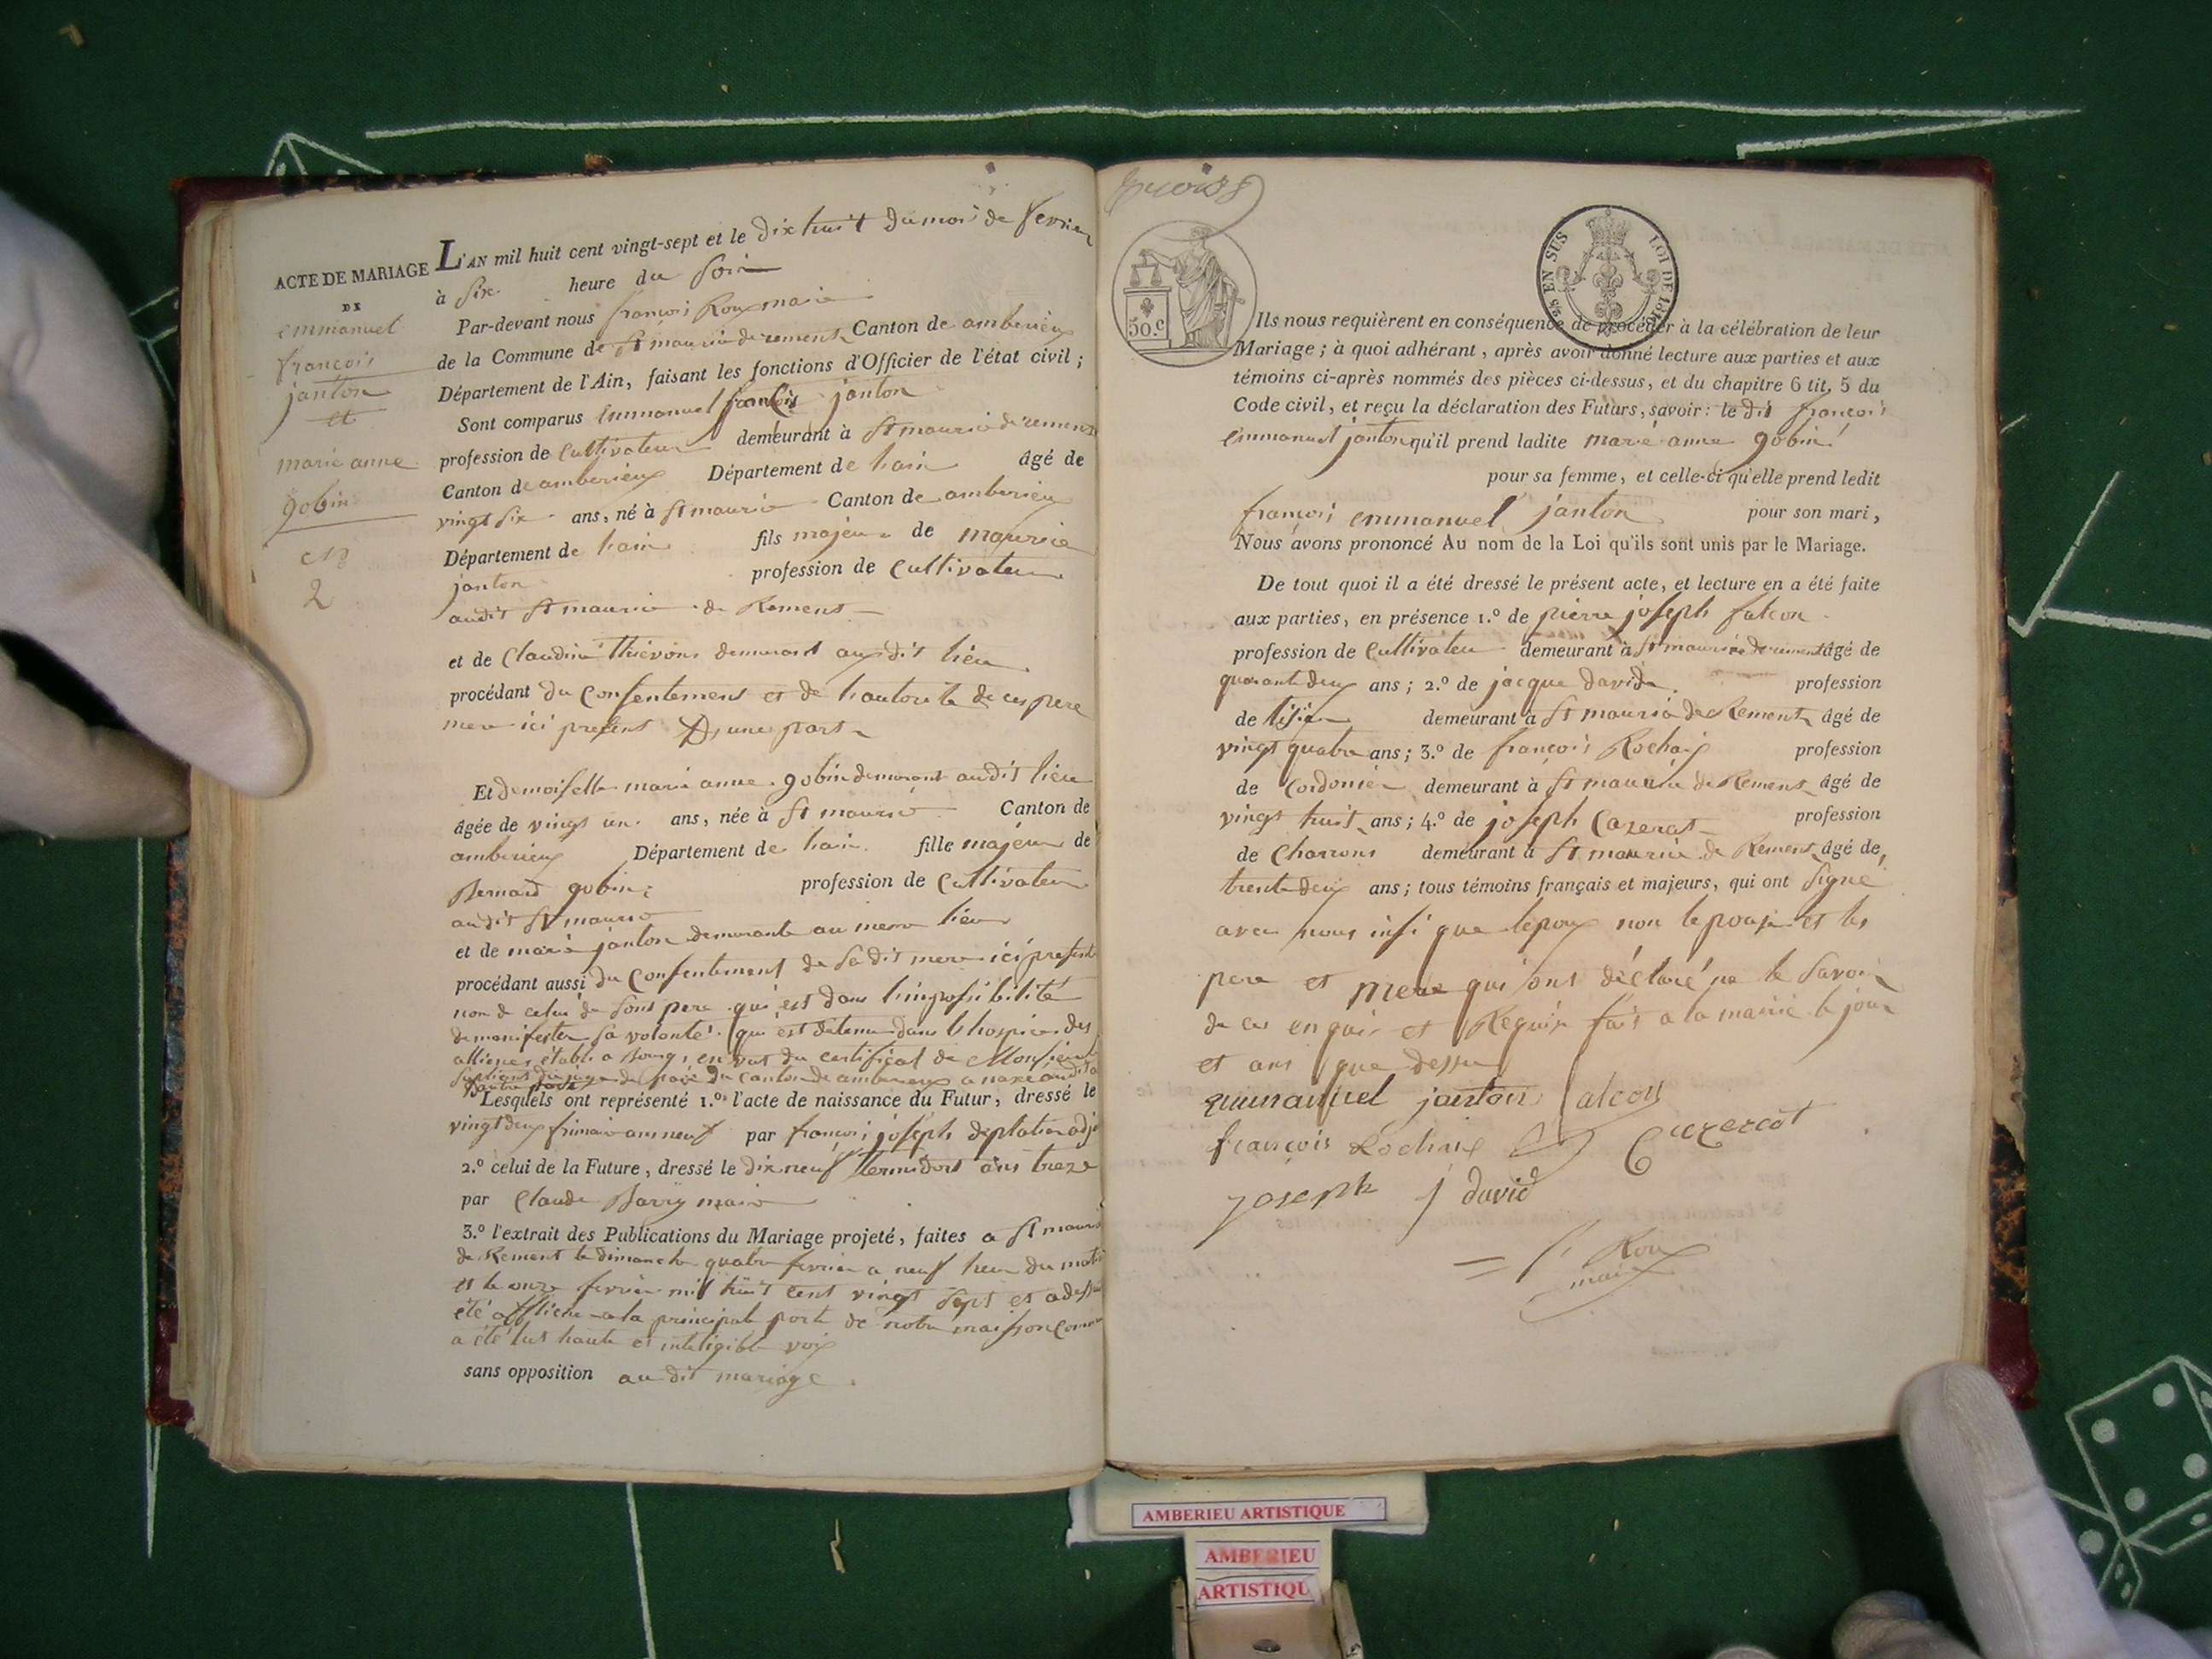 ACTE DE MARIAGE
DE
emmanuel
françois
janton
et
marie anne
gobin
N
2
L'AN mil huit cent vingt-sept et le dix huit du mois de fevrier
à six heure du soir
Par-devant nous françois Roux maire
de la Commune de St maurice de remens Canton de amberieux
Département de l'Ain, faisant les fonctions d'Officier de l'état civil ;
Sont comparus Emmanuel françois janton
profession de Cultivateur demeurant à St maurice de remens
Canton de amberieux Département de lain âgé de
vingt six ans, né à St maurice Canton de amberieux
Département de lain fils majeur de maurice
janton profession de Cultivateur
audit St maurice de Remens
et de Claudine Thievon demurant audit lieu
procédant du Consentement et de lautorite de ces pere
mere ici present D'une part
Et demoiselle marie anne gobin demurant audit lieu
âgée de vingt un ans, née à St maurice Canton de
amberieux Département de lain fille majeur de
Bernard gobin profession de Cultivateur
audit St maurice
et de marie janton demurante au meme lieu
procédant aussi du Consentement de sadit mere ici present
non de celui de sont pere qui est dans limpossibilité
de manifester sa volonté qui est detenu dans lhospice des
alliener établi a Bourg, en vut du certificat de Monsieur
de paix du Canton de amberieux annexé
Lesquels ont représenté 1.º l'acte de naissance du Futur, dressé le
vingt deux frimaire an neuf par françois joseph deplatier adj
2.º celui de la Future, dressé le dix neuf termidort ans treze
par Claude Barry maire
3.º l'extrait des Publications du Mariage projeté, faites a St mauri
de Rement le dimanche quatre fevrier a neuf heur du mati
et le onze fevrier mil huit cent vingt sept et
été affliche a la principale porte de notre maisson Comm
a été lus haute et inteligible voix
sans opposition au dit mariage
50.c
EN SUS LOI DE 1816
Ils nous requièrent en conséquence de procéder à la célébration de leur
Mariage ; à quoi adhérant, après avoir donné lecture aux parties et aux
témoins ci-après nommés des pièces ci-dessus, et du chapitre 6 tit. 5 du
Code civil, et reçu la déclaration des Futurs, savoir : le dit françois
emmanuel janton qu'il prend ladite marie anne gobin
pour sa femme, et celle-ci qu'elle prend ledit
françois emmanuel janton pour son mari,
Nous avons prononcé Au nom de la Loi qu'ils sont unis par le Mariage.
De tout quoi il a été dressé le présent acte, et lecture en a été faite
aux parties, en présence 1.º de pierre joseph falcon
profession de Cultivateu demeurant à St maurice de rement âgé de
quarante deux ans ; 2.º de jacque david profession
de demeurant à St maurice de Rement âgé de
vingt quatre ans ; 3.º de françois Rochaix profession
de Cordonier demeurant à St maurice de Remens âgé de
vingt huit ans ; 4.º de joseph Cazerat profession
de Charrons demeurant à St maurice de Remens âgé de
trente deux ans ; tous témoins français et majeurs, qui ont signé
avec nous insi que lepoux non lepouse et les
pere et mere qui ont déclaré ne le savoir
de ce enquis et Requis fait a la mairie le jour
et ans que dessu
emmanuel janton falcon
françois Rochaix Cuzercot
joseph j david
f. Roux
maire
AMBERIEU ARTISTIQUE
AMBERIEU
ARTISTIQU